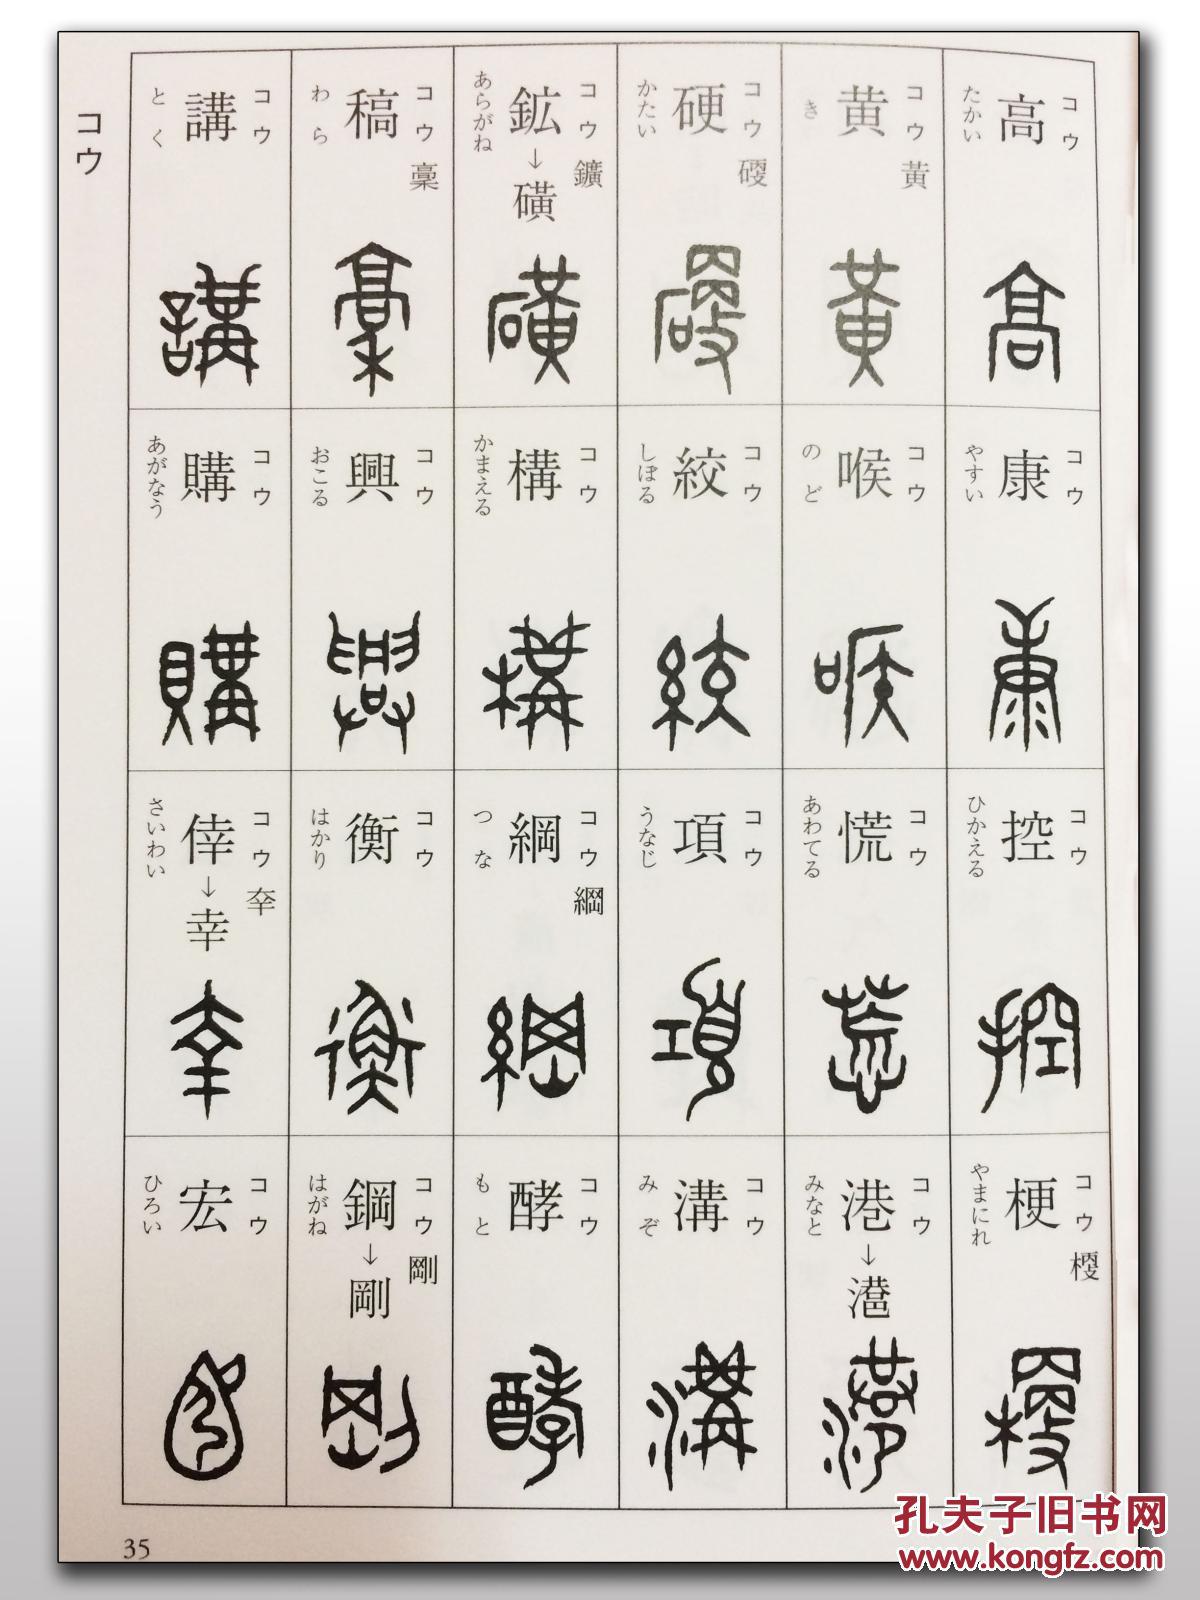 コウ
コウ
高
たかい
コウ
康
やすい
コウ
控
ひかえる
コウ 㮴
梗
やまにれ
コウ 黃
黄
き
コウ
喉
のど
コウ
慌
あわてる
コウ
港→
みなと
コウ
硬
かたい
コウ
絞
しぼる
コウ
項
うなじ
コウ
溝
みぞ
コウ 鑛
鉱→磺
あらがね
コウ
構
かまえる
コウ
綱
つな
コウ
酵
もと
コウ 稾
稿
わら
コウ
興
おこる
コウ
衡
はかり
コウ
鋼→剛
はがね
コウ
講
とく
コウ
購
あがなう
コウ
倖→幸
さいわい
コウ
宏
ひろい
35
孔夫子旧书网
www.kongfz.com